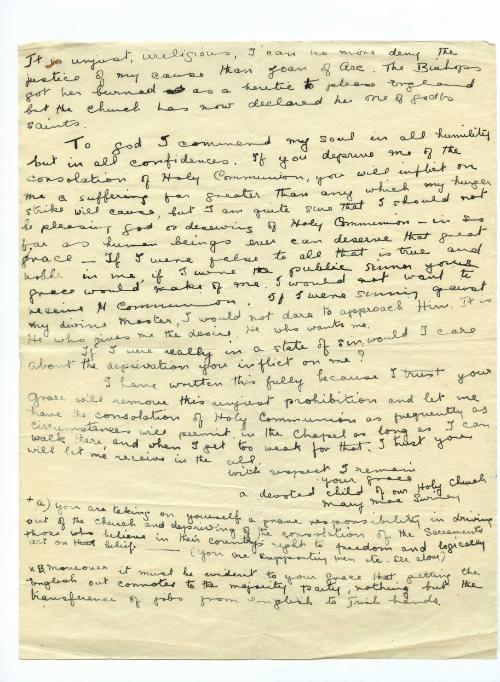 It is unjust, irreligious, I can no more deny the
justice of my cause than Joan of Arc. The Bishops
got her burned as a heretic to please England
but the church has now declared her one of God's
saints.
To God I commend my soul in all humility
but in all confidences. If you deprive me of the
consolation of Holy Communion, you will inflict on
me a suffering far greater than any which my hunger
strike will cause, but I am quite sure that I should not
be pleasing God or deserving of Holy Communion – in so
far as human beings ever can deserve that great
grace – If I were false to all that is true and
noble in me, if I were the public sinner your
grace would make of me. I would not want to
receive H Communion. If I were sinning against
my divine Master, I would not dare to approach Him. It is
He who gives me the desire. He who wants me.
If I were really in a state of sin, would I care
about the deprivation you inflict on me?
I have written this fully because I trust your
Grace will remove this unjust prohibition and let me
have the consolation of Holy Communion as frequently as
circumstances will permit in the Chapel as long as I can
walk there, and when I get too weak for that, I trust you
will let me receive in the cell.
with respect I remain
your grace
a devoted child of our Holy Church
Mary MacSwiney
+ a) you are taking on yourself a grave responsibility in driving
out of the church and depriving of the consolation of the Sacraments
those who believe in their country's right to freedom and logically
act on that belief. (you are supporting men etc. see above)
x B Moreover it must be evident to your Grace that getting the
English out connotes to the majority party, nothing but the
transference of jobs from English to Irish hands.